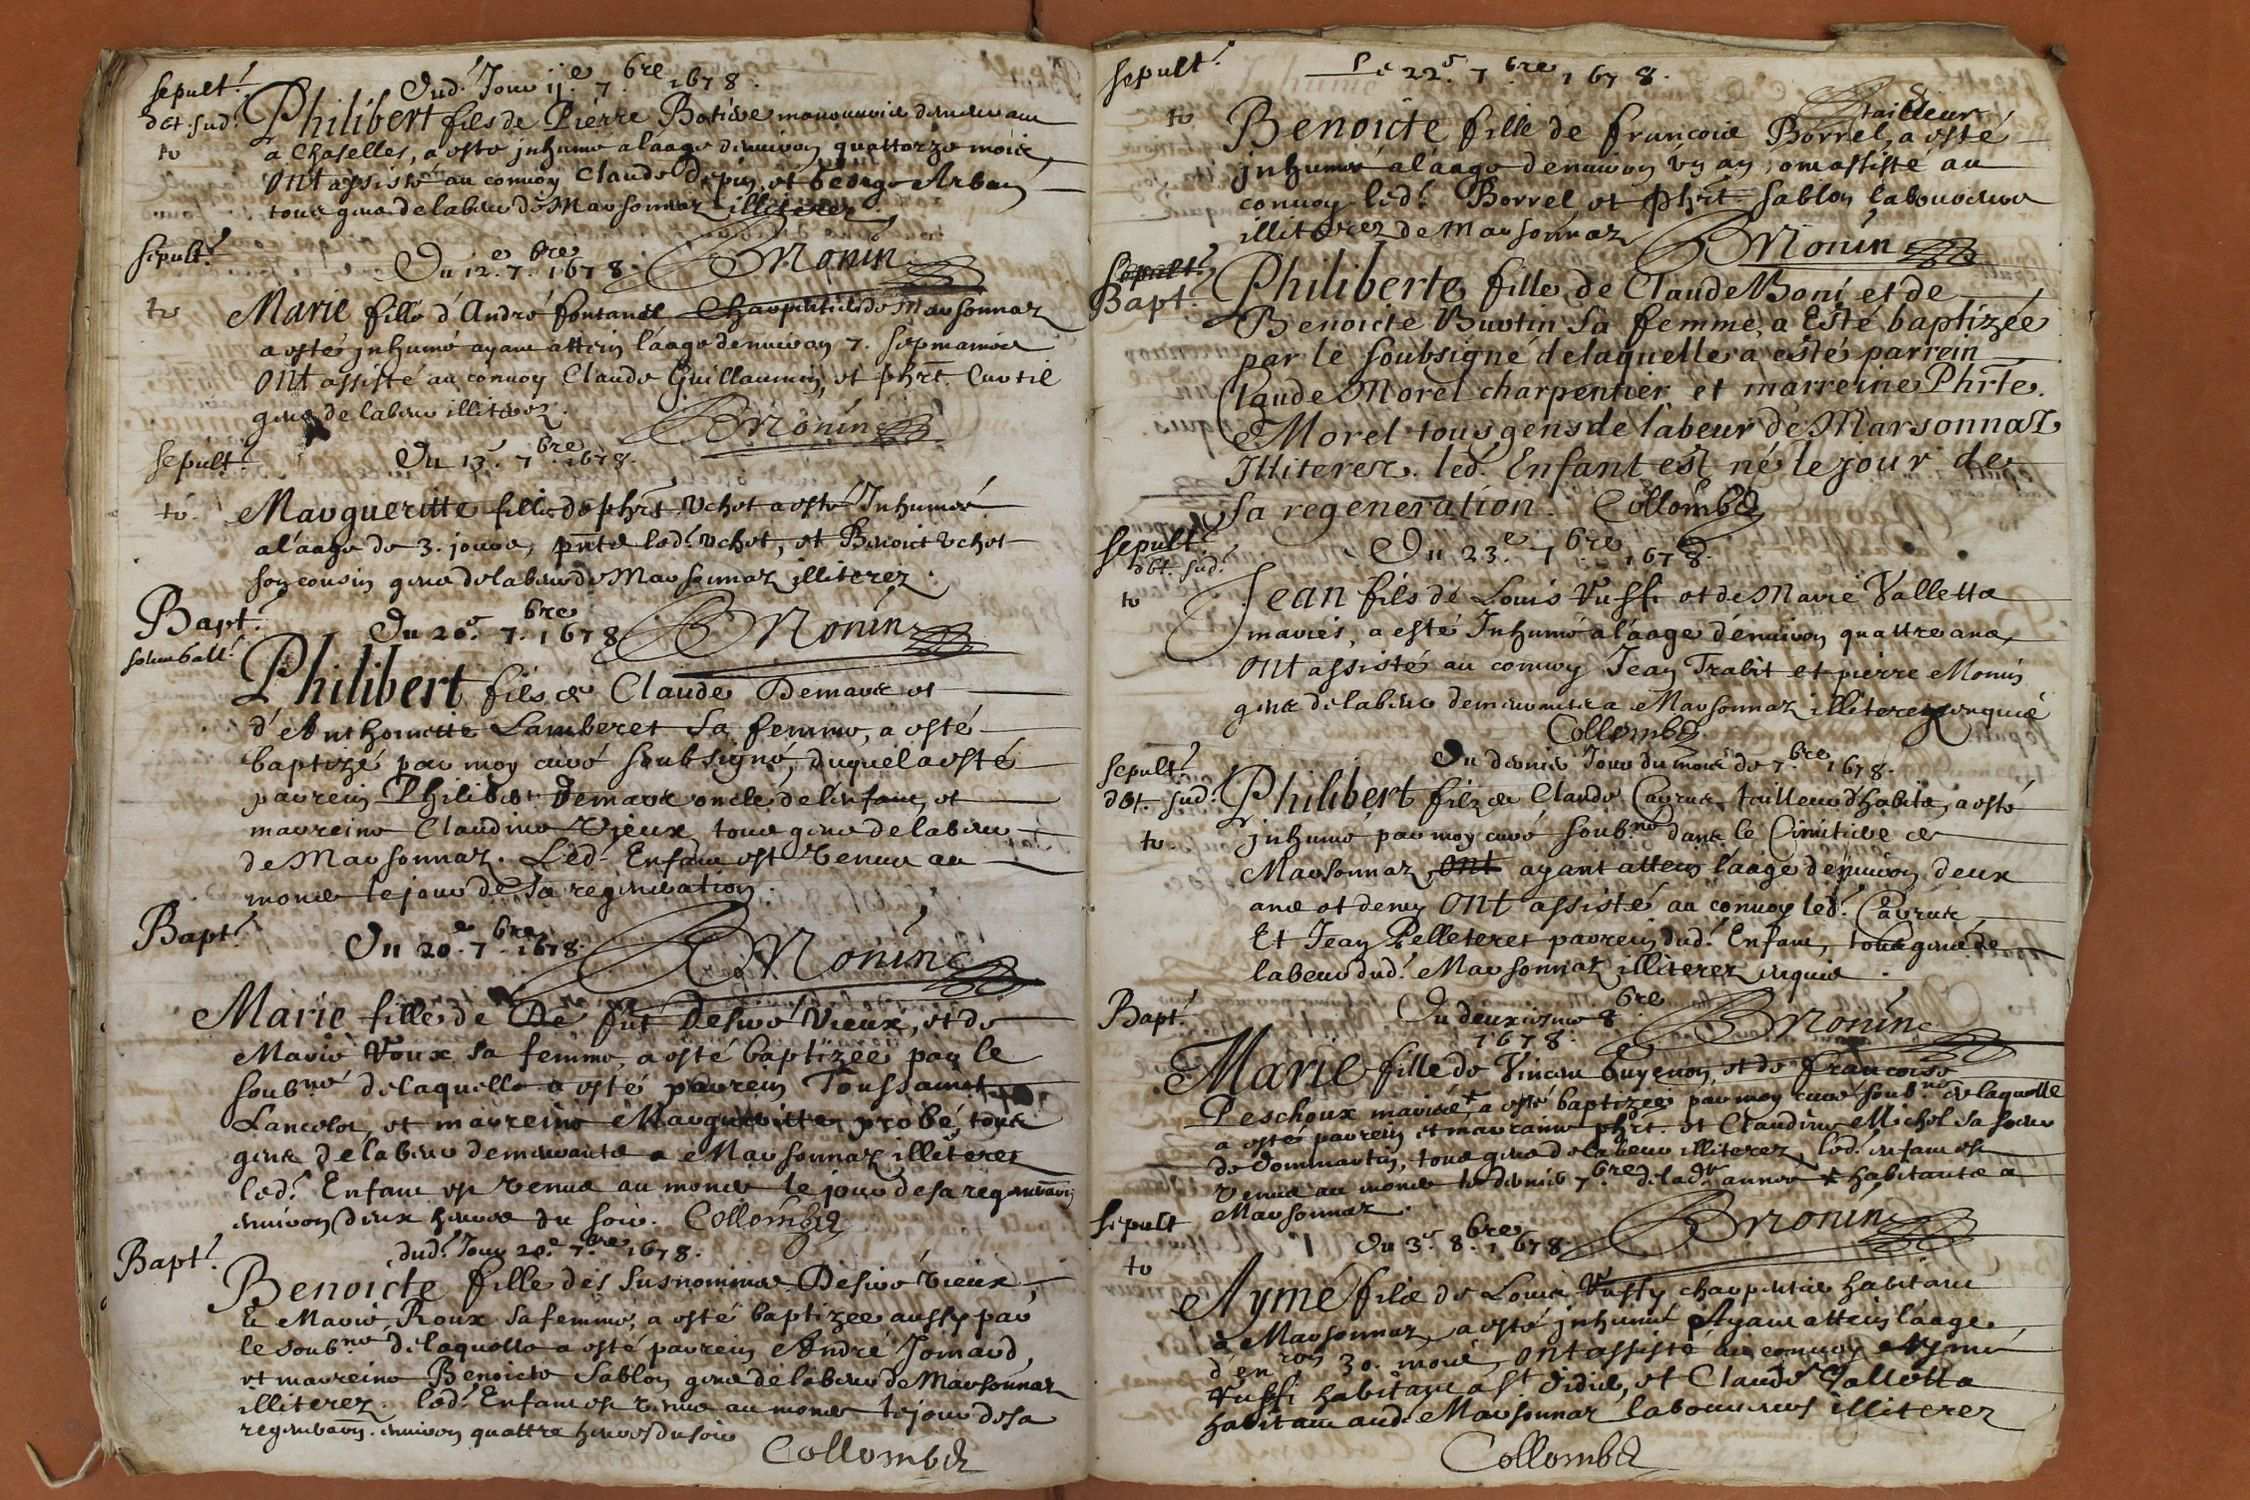 sepult.
Dud. Jour ij.e 7.bre 1678.
det. sud.
to
Philibert fils de Pierre
a Chaselles, a esté inhumé a laage denuiron quattorze mois,
ont assisté au conuoy Claude Depin, et George Arban
tous gens de labeur de Marsonnaz illiterez
Monin
sepult.
Du 12.e 7.bre 1678.
to
Marie fille d'André fontanel Charpentier de Marsonnaz
a esté inhumé ayant attein laage denuiron 7. sepmaines
ont assisté au conuoy Claude Guillaumin, et phrt. Curtil
gens de labeur illiterez.
Monin
sepult.
Du 13.e 7.bre 1678.
to
Margueritte fille de phrt Vchet a esté Inhumée
a laage de 3. jours, pnts led. Vchet, et Benoict Vchet
son cousin gens de labeur de Marsonnaz illiterez.
Monin
Bapt.
Du 20.e 7.bre 1678
Philibert fils de Claude Demarc et
d'Anthoinette Lamberet sa femme, a esté
baptizé par moy curé soubsigné, duquel a esté
parrein Philibert Demarc oncle de lenfant, et
marreine Claudine Vieux, tous gens de labeur
de Marsonnaz. Led. Enfant est venue au
monde le jour de sa regeneration.
Monin
Bapt.
Du 20.e 7.bre 1678.
Marie fille de De fut Desiré Vieux, et de
Marie Roux sa femme, a esté baptizee par le
soub.né delaquelle a esté parrein Toussainct
Lancelot, et marreine Margueritte probé, tous
gens de labeur demeurants a Marsonnaz illiterez
led. Enfant est venue au monde le jour de sa regenration
enuiron deux heures du soir. Collombet
Bapt.
dud. Jour 20.e 7.bre 1678.
Benoicte fille des susnommés Desiré Vieux,
Et Marie Roux sa femme, a esté baptizee aussy par
le soub.né delaquelle a esté parrein André Joinard,
et marreine Benoicte Sablon gens de labeur de Marsonnaz
illiterez. led. Enfant est venue au monde le jour de sa
regenration. enuiron quattre heures du soir
Collombet
sepult.
Le 22.e 7.bre 1678.
tailleur
to
Benoicte fille de francois Borrel, a esté
inhumée a laage denuiron vn an, ont assisté au
conuoy led. Borrel, et phrt. Sablon laboureurs
illiterez de Marsonnaz
Monin
Sepult.
Bapt.
Philiberte fille de Claude Boni et de
Benoicte Buvtin sa femme, a Esté baptizée
par le soubsigné delaquelle a esté parrein
Claude Morel charpentier et marreine Phrte.
Morel tous gens de labeur de Marsonnaz
Illiterez. led. Enfant est né le jour de
sa regeneration. Collombet
sepult.
det. sud.
Du 23.e 7bre 1678.
to
Jean fils de Louis Vuffi et de Marie Valletta
mariés, a esté Inhumé a laage denuiron quattre ans
ont assistés au conuoy Jean Trabit et pierre Monin
gens de labeur demeurants a Marsonnaz illiterez enquis
Collombet
sepult.
det. sud.
Du dernier Jour du mois de 7.bre 1678.
to.
Philibert filz de Claude tailleur dhabits, a esté
inhumé par moy curé soub.né dans le Cimitiere de
Marsonnaz, ont ayant attein laage denuiron deux
ans et demy ont assisté au conuoy led.
Et Jean Pelleteret parrein dud. Enfant, tous gens de
labeur dud. Marsonnaz illiterez enquis.
Monin
Bapt.
Du deuxiesme 8.bre
1678.
Marie fille de Vincent Guyenon, et de francoise
Peschoux mariés,* a esté baptizée par moy curé soub.né delaquelle
a esté parrein et marraine phrt. et Claudine Michel sa soeur
de Dommartin, tous gens de labeur illiterez, led. enfant est
venue au monde le dernier 7.bre de lad. annee * habitants a
Marsonnaz.
Monin
sepult
Du 3.e 8.bre 1678
to
Aymé filz de Louis Vuffy charpentier habitant
a Marsonnaz, a esté inhumé Ayant attein laage
d'en.ron 30. mois, ont assisté au conuoy Aymé
Vuffi habitant a St Didier, et Claude Valletta
habitant aud. Marsonnaz laboureurs illiterez
Collombet